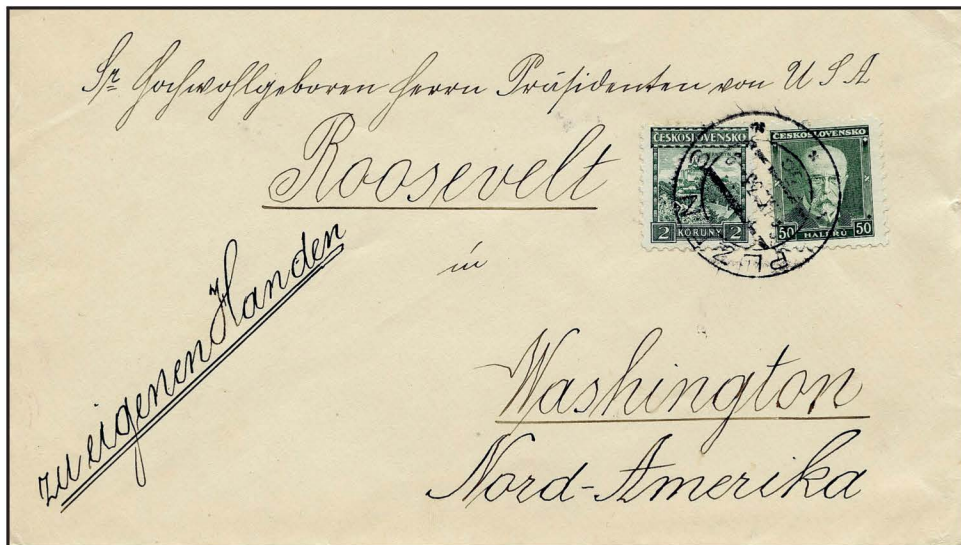 Sr Hochwohlgeboren Herrn Präsidenten von U S A
Roosevelt
in
Washington
Nord-Amerika
zu eigenen Handen
ČESKOSLOVENSKO
2 KORUNY 2
ČESKOSLOVENSKO
50 HALÉŘŮ 50
PLZEŇ